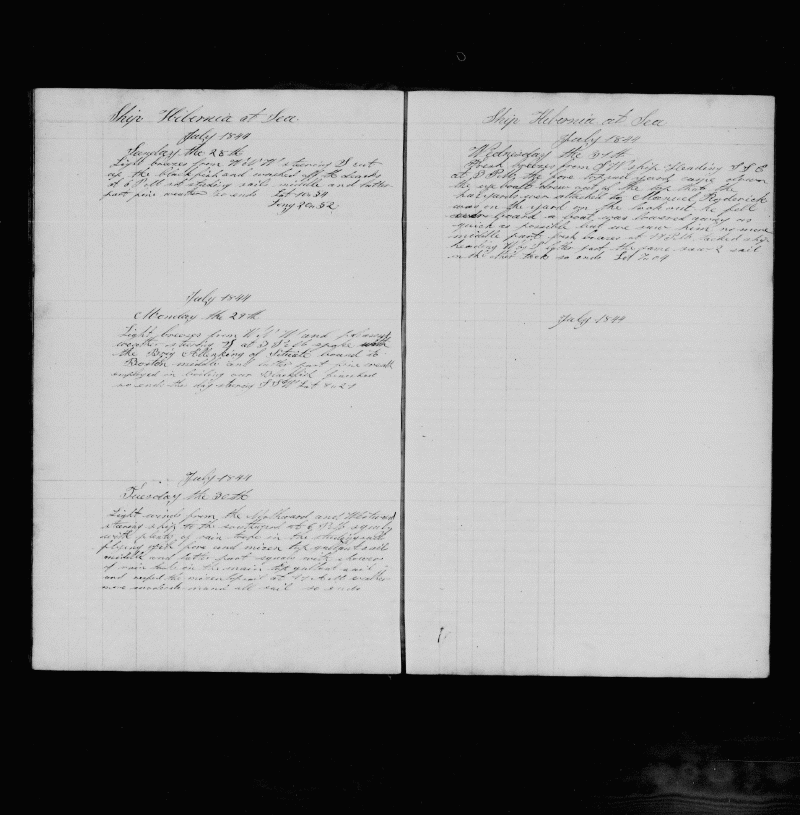 Ship Hibernia at Sea
July 1844
Sunday the 28th
Light breezes from W N W steering S cut
up the blackfish and washed off the decks
at 6 P M studing sails middle and latter
part fine weather so ends Lat 10.39
Long 20.32
July 1844
Monday the 29th
Light breezes from and pleasant
weather steering S at 3 P M spoke with
the Brig of Situate bound to
Boston middle and latter part fine weath
employed in boiling our Blackfish finished
so ends the day steering S S W Lat
July 1844
Tuesday the 30th
Light winds from the Northward and Westward
steering ship to the southward at 6 P M squaly
with plenty of rain took in the studingsails
flying gib fore and mizen top gallant sails
middle and latter part squals with showers
of rain took in the main top gallant sail
and reefed the mizentopsail at weather
more moderate made all sail so ends
Ship Hibernia at Sea
July 1844
Wednesday the 31st
Fresh breezes from S W ship Heading S S E
at 3 P M the fore topsail yard came down
the eye boalt drew out of the top that the
halyards was attached to Manuel
was on the yard on the look out he fell
over board a boat was lowered away as
quick as possible but we saw him no more
middle part fresh breeses at P M tacked ship
heading W by S latter part the same saw 2 sail
on the other tack so ends Lat
July 1844